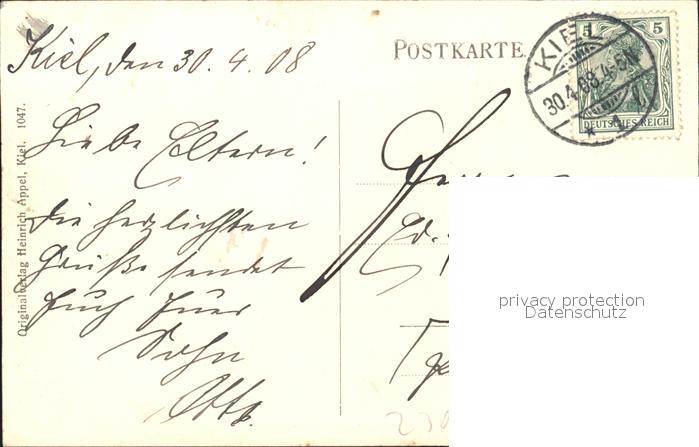 Kiel, den 30. 4. 08
Liebe Eltern!
Die herzlichsten
Grüße sendet
Euch Euer
Sohn
Otto.
Originalverlag Heinrich Appel, Kiel. 1047.
POSTKARTE
KIEL
30.4.08.4-5N
* 1
5 5
DEUTSCHES REICH
Ed.
privacy protection
Datenschutz